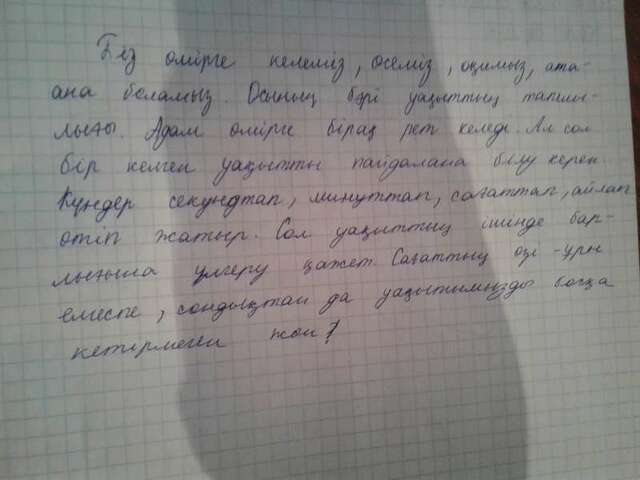 Біз өмірге келеміз, өсеміз, оқимыз, ата-
ана боламыз. Осының бәрі уақыттың тапшы-
лығы. Адам өмірге бірақ рет келеді. Ал сол
бір келген уақытты пайдалана білу керек.
Күндер секундтап, минуттап, сағаттап, айлап
өтіп жатыр. Сол уақыттың ішінде бар-
лығына үлгеру қажет. Сағаттың өзі - ұры
емеспе, сондықтан да уақытымызды босқа
кетірмеген жөн!